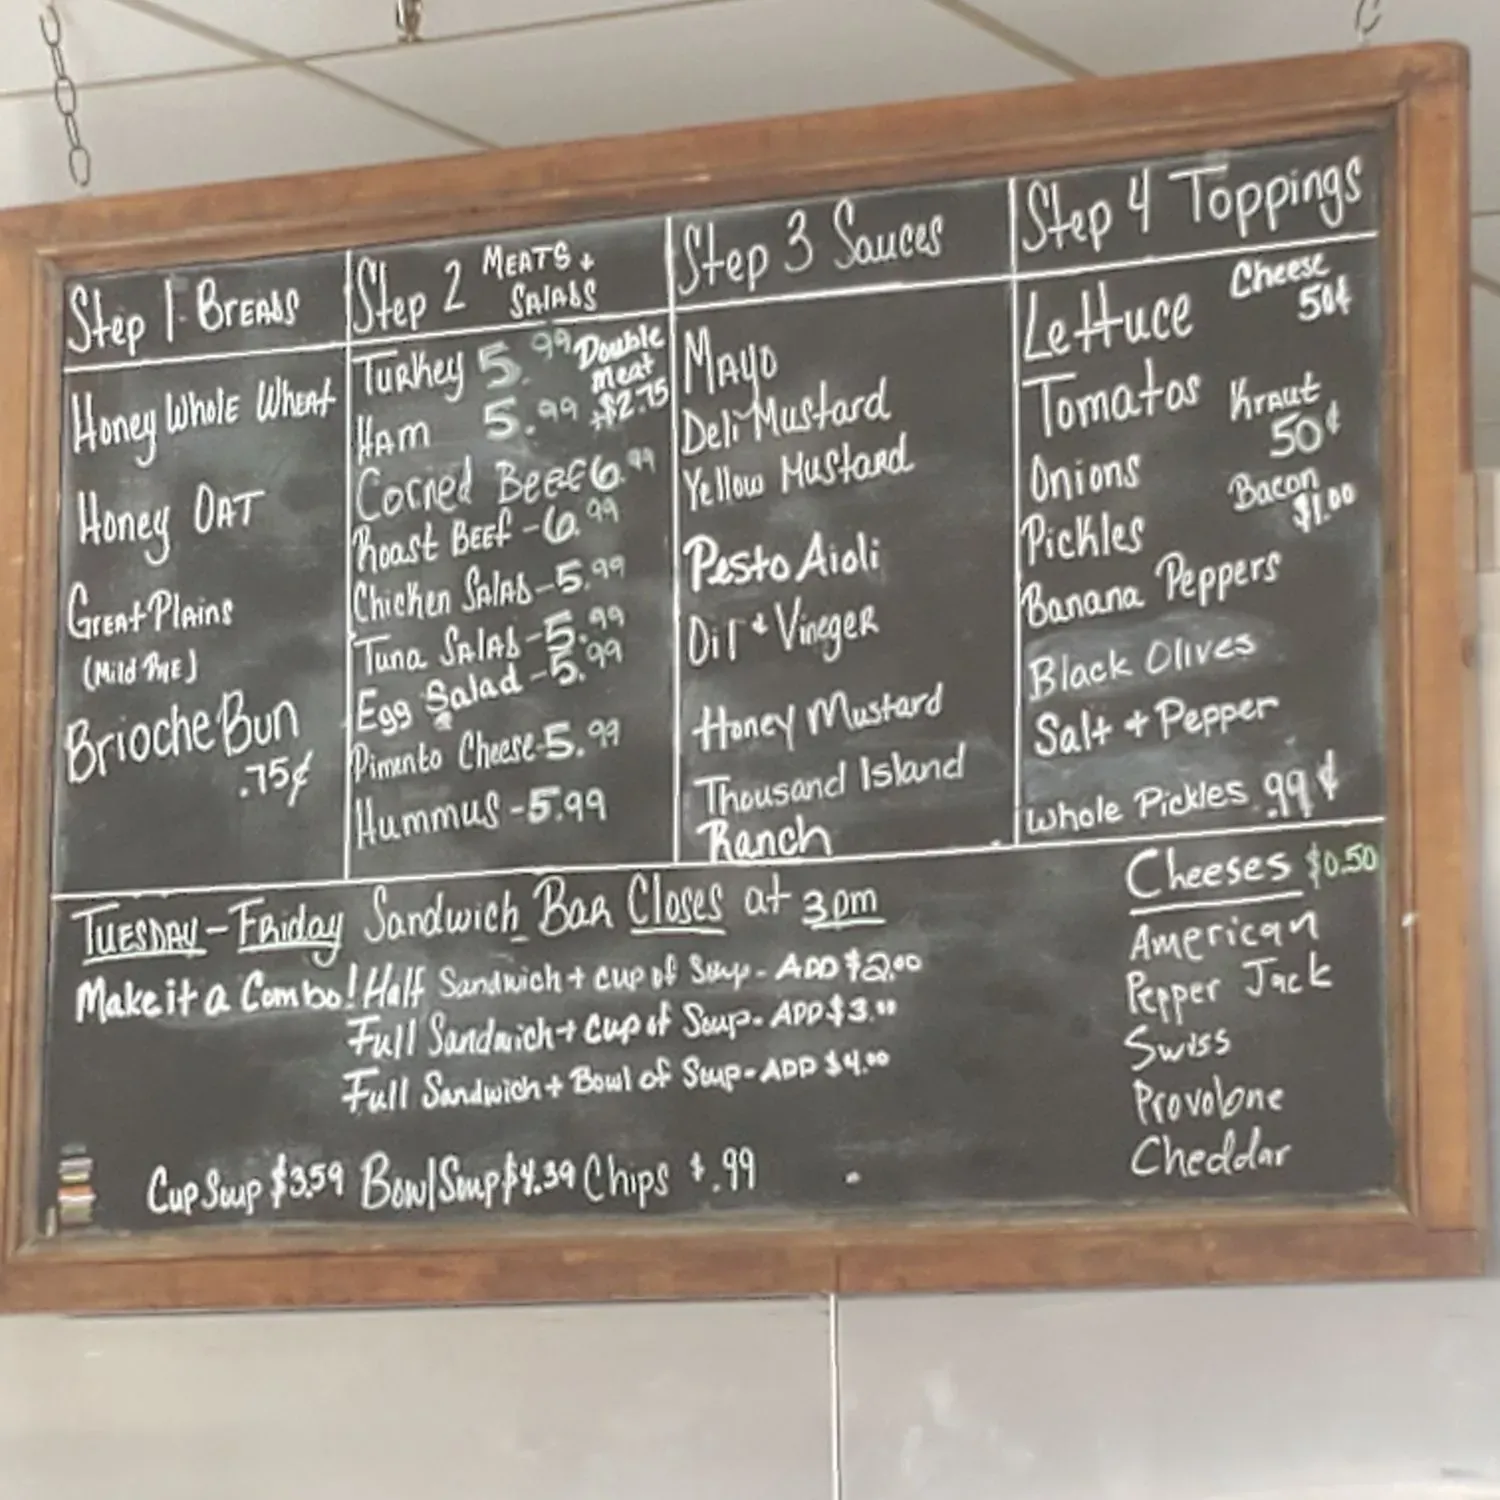 Step 1 - Breads
Honey Whole Wheat
Honey Oat
Great Plains
(Mild Rye)
Brioche Bun
.75¢
Step 2 Meats +
Salads
Turkey 5.99
Ham 5.99
Double
Meat
+$2.75
Corned Beef 6.99
Roast Beef - 6.99
Chicken Salad - 5.99
Tuna Salad - 5.99
Egg Salad - 5.99
Pimento Cheese - 5.99
Hummus - 5.99
Step 3 Sauces
Mayo
Deli Mustard
Yellow Mustard
Pesto Aioli
Oil + Vineger
Honey Mustard
Thousand Island
Ranch
Step 4 Toppings
Lettuce
Tomatos
Onions
Pickles
Banana Peppers
Black Olives
Salt + Pepper
Whole Pickles .99¢
Cheese
50¢
Kraut
50¢
Bacon
$1.00
Tuesday - Friday Sandwich Bar Closes at 3pm
Make it a Combo! Half Sandwich + cup of Soup - ADD $2.00
Full Sandwich + Cup of Soup - ADD $3.00
Full Sandwich + Bowl of Soup - ADD $4.00
Cup Soup $3.59 Bowl Soup $4.39 Chips $.99
Cheeses $0.50
American
Pepper Jack
Swiss
Provolone
Cheddar